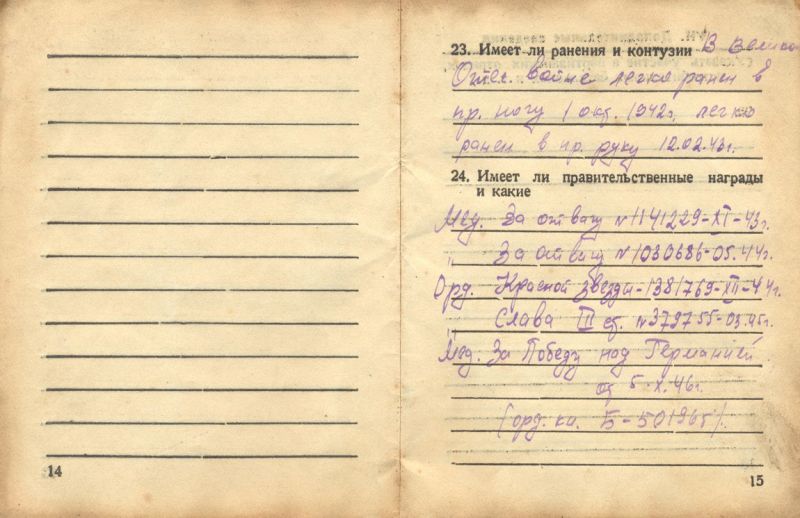 23. Имеет ли ранения и контузии В Велико
Отеч. войне легко ранен в
пр. ногу 1 окт. 1942г, легко
ранен в пр. руку 12.02.43г.
24. Имеет ли правительственные награды
и какие
Мед. За отвагу №1141229-XI-43г.
" За отвагу №1030686-05.44г.
Орд. Красной Звезды-1381769-XII-44г.
" Слава III ст. №379755-03.45г.
Мед. За Победу над Германией
от 5-X.46г.
(орд. кн. Б-501965).
14
15